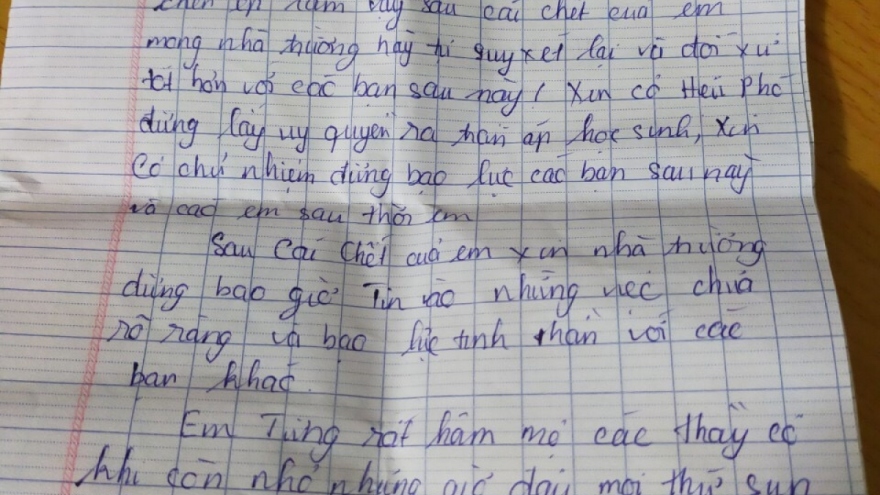 chèn ép lắm vậy sau cái chết của em
mong nhà trường hãy tự suy xét lại và đối xử
tốt hơn với các bạn sau này! Xin cô Hiệu Phó
đừng lấy uy quyền ra trấn áp học sinh, xin
Cô chủ nhiệm đừng bạo lực các bạn sau này
và các em sau thôi em
Sau Cái Chết của em xin nhà trường
đừng bao giờ Tin vào những việc chưa
rõ ràng và bạo lực tinh thần với các
bạn khác.
Em Từng rất hâm mộ các thầy cô
khi còn nhỏ những giờ dạy mọi thứ sụp